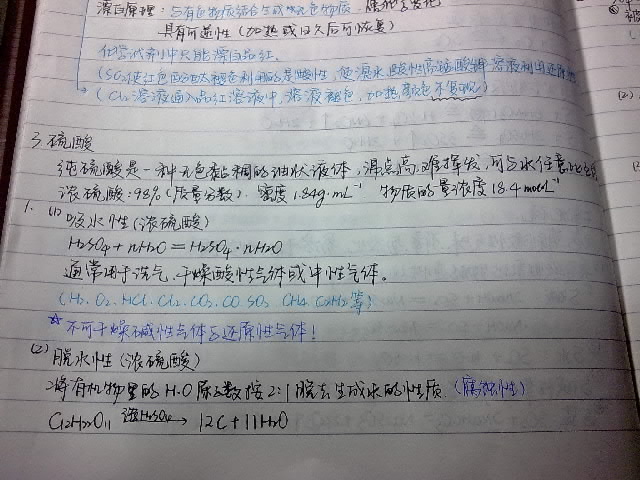 漂白原理：与有色物质结合生成无色物质
具有可逆性（加热或日久后可恢复）
化学试剂中只能漂白品红.
(SO₂使红色 利用的是酸性，使溴水、酸性高锰酸钾溶液利用还原性
(Cl₂溶液通入品红溶液中，溶液褪色，加热颜色不复现)
3.硫酸
纯硫酸是一种无色黏稠的油状液体，沸点高，难挥发，可与水任意比
浓硫酸：98%（质量分数）. 密度1.84g·mL⁻¹ 物质的量浓度18.4mol·L⁻¹
1. (1) 吸水性(浓硫酸)
H₂SO₄+nH₂O=H₂SO₄·nH₂O
通常用于洗气，干燥酸性气体或中性气体。
(H₂. O₂. HCl. Cl₂. CO₂. CO. SO₂ CH₄. C₂H₂等)
☆不可干燥碱性气体与还原性气体！
(2) 脱水性(浓硫酸)
将有机物里的H.O原子数按2:1脱去生成水的性质.（腐蚀性）
C₁₂H₂₂O₁₁ 浓H₂SO₄→ 12C+11H₂O
(2).